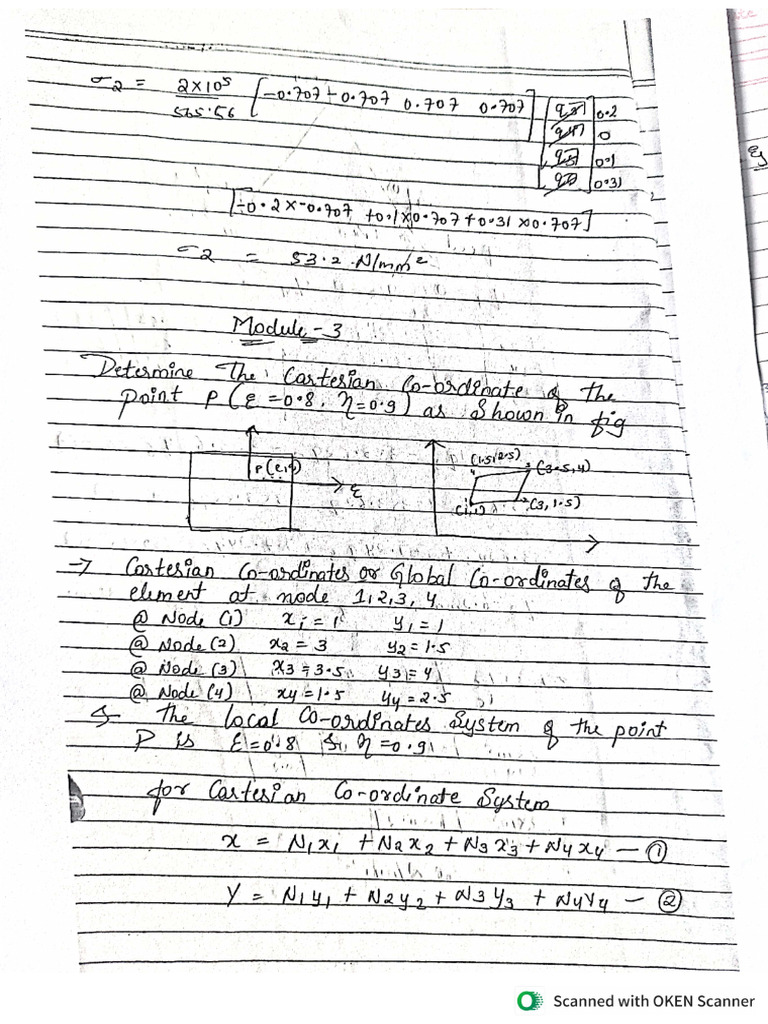 σ2 = 2×10⁵ [-0.707 -0.707 0.707 0.707] 0.2
565.56 0
0.1
0.31
[-0.2×-0.707 +0.1×0.707+0.31×0.707]
σ2 = 53.2 N/mm²
Module-3
Determine The Cartesian Co-ordinate of the
point P(ε=0.8, η=0.9) as shown in fig
(1.5,2.5) 3 (3.5,4)
P(ε,η)
ε
(1,1) 2 (3,1.5)
→ Cartesian Co-ordinates or Global Co-ordinates of the
element at node 1,2,3,4
@ Node (1) x1=1 y1=1
@ Node (2) x2=3 y2=1.5
@ Node (3) x3=3.5 y3=4
@ Node (4) x4=1.5 y4=2.5
The local Co-ordinates System of the point
P is ε=0.8 & η=0.9
for Cartesian Co-ordinate System
x = N1x1 + N2x2 + N3x3 + N4x4 — ①
Y = N1y1 + N2y2 + N3y3 + N4Y4 — ②
Scanned with OKEN Scanner